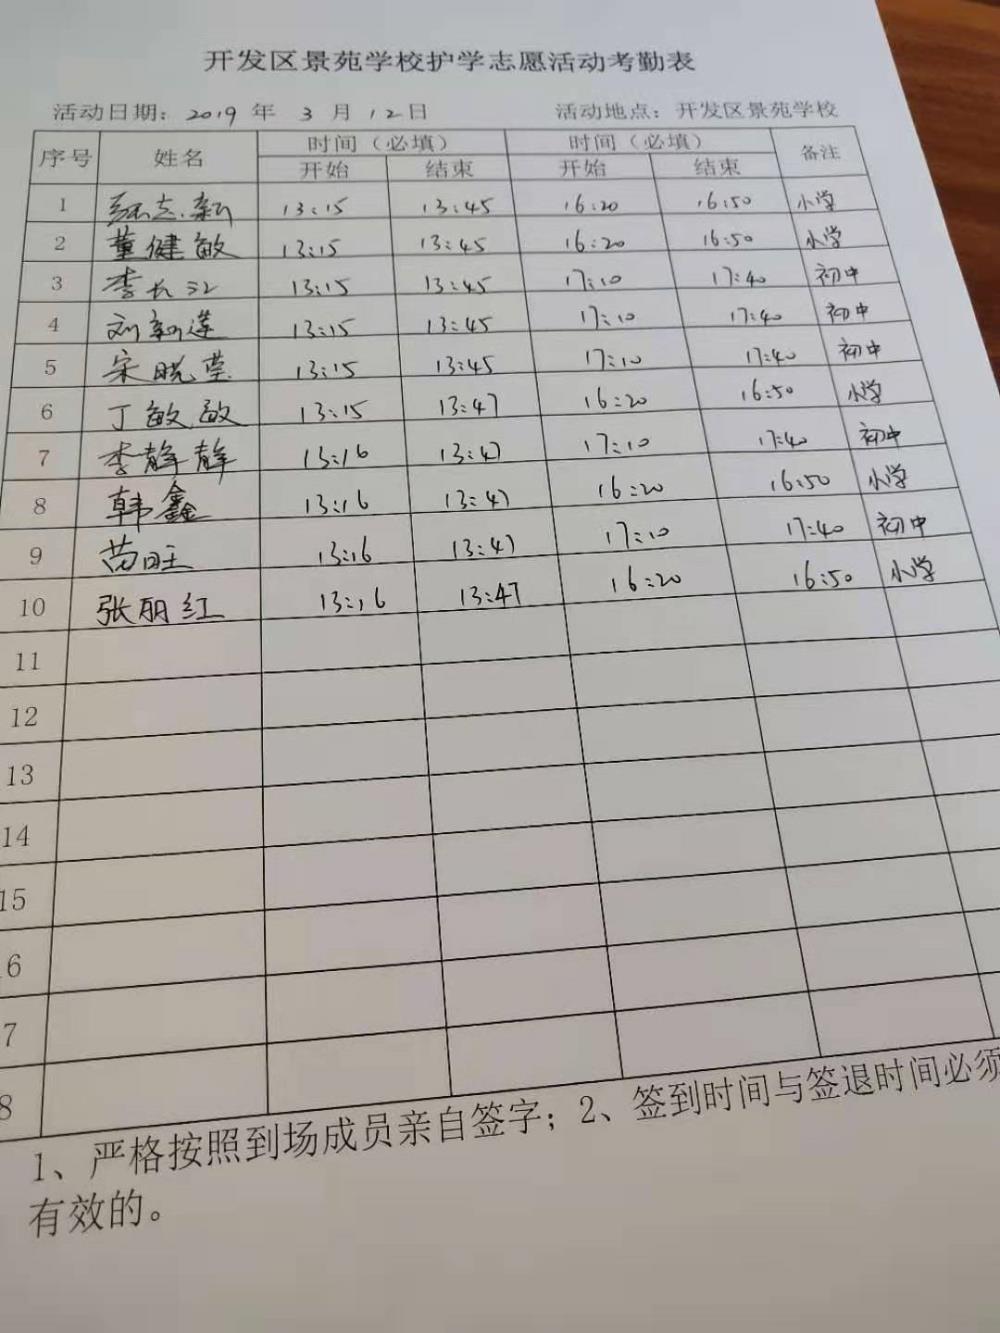 开发区景苑学校护学志愿活动考勤表
活动日期：2019 年 3 月 12日 活动地点：开发区景苑学校
序号 姓名 时间（必填） 时间（必填） 备注
开始 结束 开始 结束
1 志新 13:15 13:45 16:20 16:50 小学
2 董健敏 13:15 13:45 16:20 16:50 小学
3 李长江 13:15 13:45 17:10 17:40 初中
4 刘新莲 13:15 13:45 17:10 17:40 初中
5 宋晓莹 13:15 13:45 17:10 17:40 初中
6 丁敏敏 13:15 13:47 16:20 16:50 小学
7 李静静 13:16 13:47 17:10 17:40 初中
8 韩鑫 13:16 13:47 16:20 16:50 小学
9 苗旺 13:16 13:47 17:10 17:40 初中
10 张丽红 13:16 13:47 16:20 16:50 小学
11
12
13
14
15
6
7
8
1、严格按照到场成员亲自签字；2、签到时间与签退时间必须
有效的。